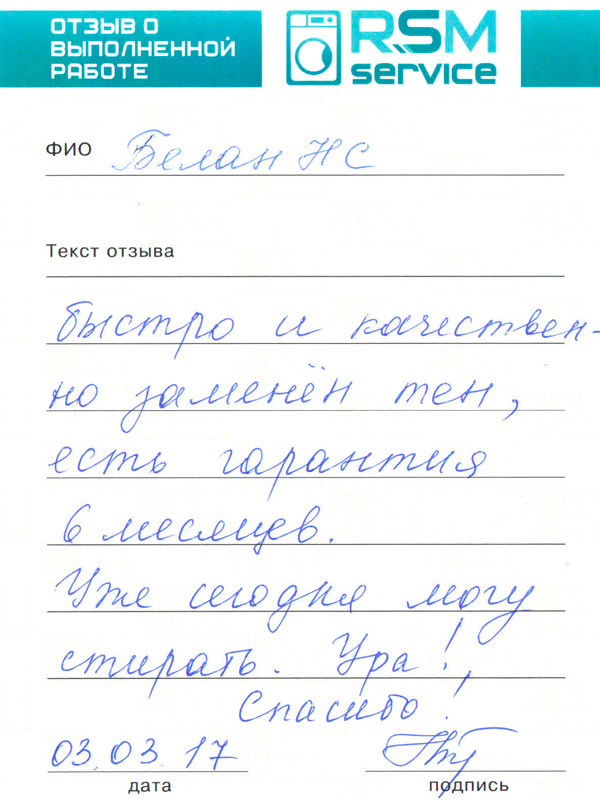 ОТЗЫВ О
ВЫПОЛНЕННОЙ
РАБОТЕ
RSM
service
ФИО Белан Н С
Текст отзыва
быстро и качествен-
но заменён тен,
есть гарантия
6 месяцев.
Уже сегодня могу
стирать. Ура!
Спасибо!
03.03.17
дата подпись